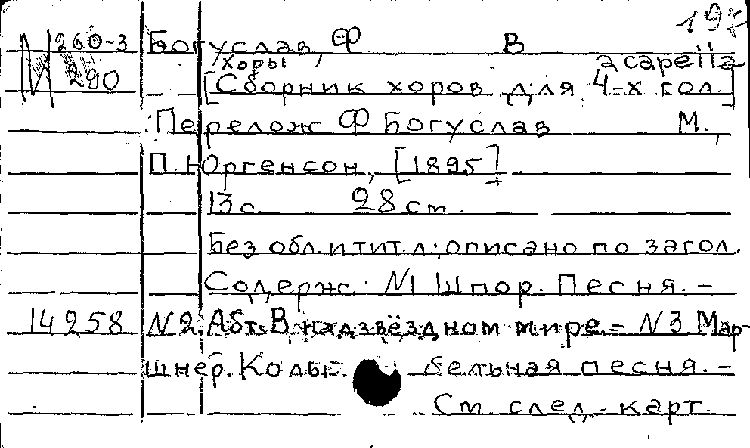 197
М 260-3 Богуслав, Ф В
хоры acapella
290 [Сборник хоров для 4-х гол.]
Перелож Ф Богуслав М.,
П. Юргенсон, [1895]
13 с. 28 см.
Без обл. и тит. л; описано по загол.
Содерж: №1 Шпор. Песня. –
14258 №2. Абт. В надзвёздном мире – №3 Мар-
шнер. Колы бельная песня. –
См. след. карт.